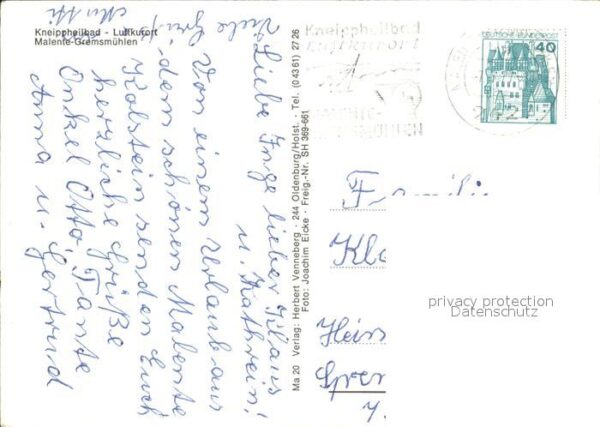 Kneippheilbad - Luftkurort
Malente-Gremsmühlen
Liebe Inge lieber Klaus
u. Kathrein!
Von einem Urlaub aus
dem schönen Malente
Holstein senden Euch
herzliche Grüße
Onkel Otto, Tante
Anna u. Gertrud
Viele
Mutti
Ma 20 Verlag: Herbert Venneberg · 244 Oldenburg/Holst. · Tel. (04361) 27 26
Foto: Joachim Eicke · Freig.-Nr. SH 369-661
Kneippheilbad
Luftkurort
DEUTSCHE BUNDESPOST
40
Famili
Kla
Heins
privacy protection
Datenschutz